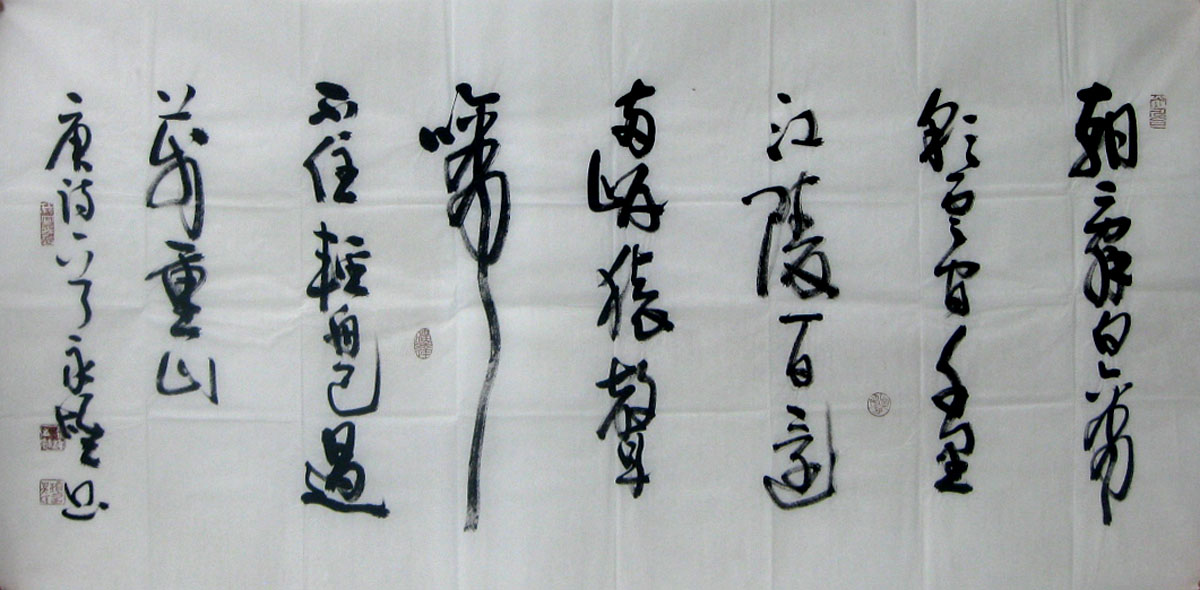 朝辭白帝
彩雲間千里
江陵一日還
兩岸猿聲
啼
不住輕舟已過
萬重山
唐詩一首永書